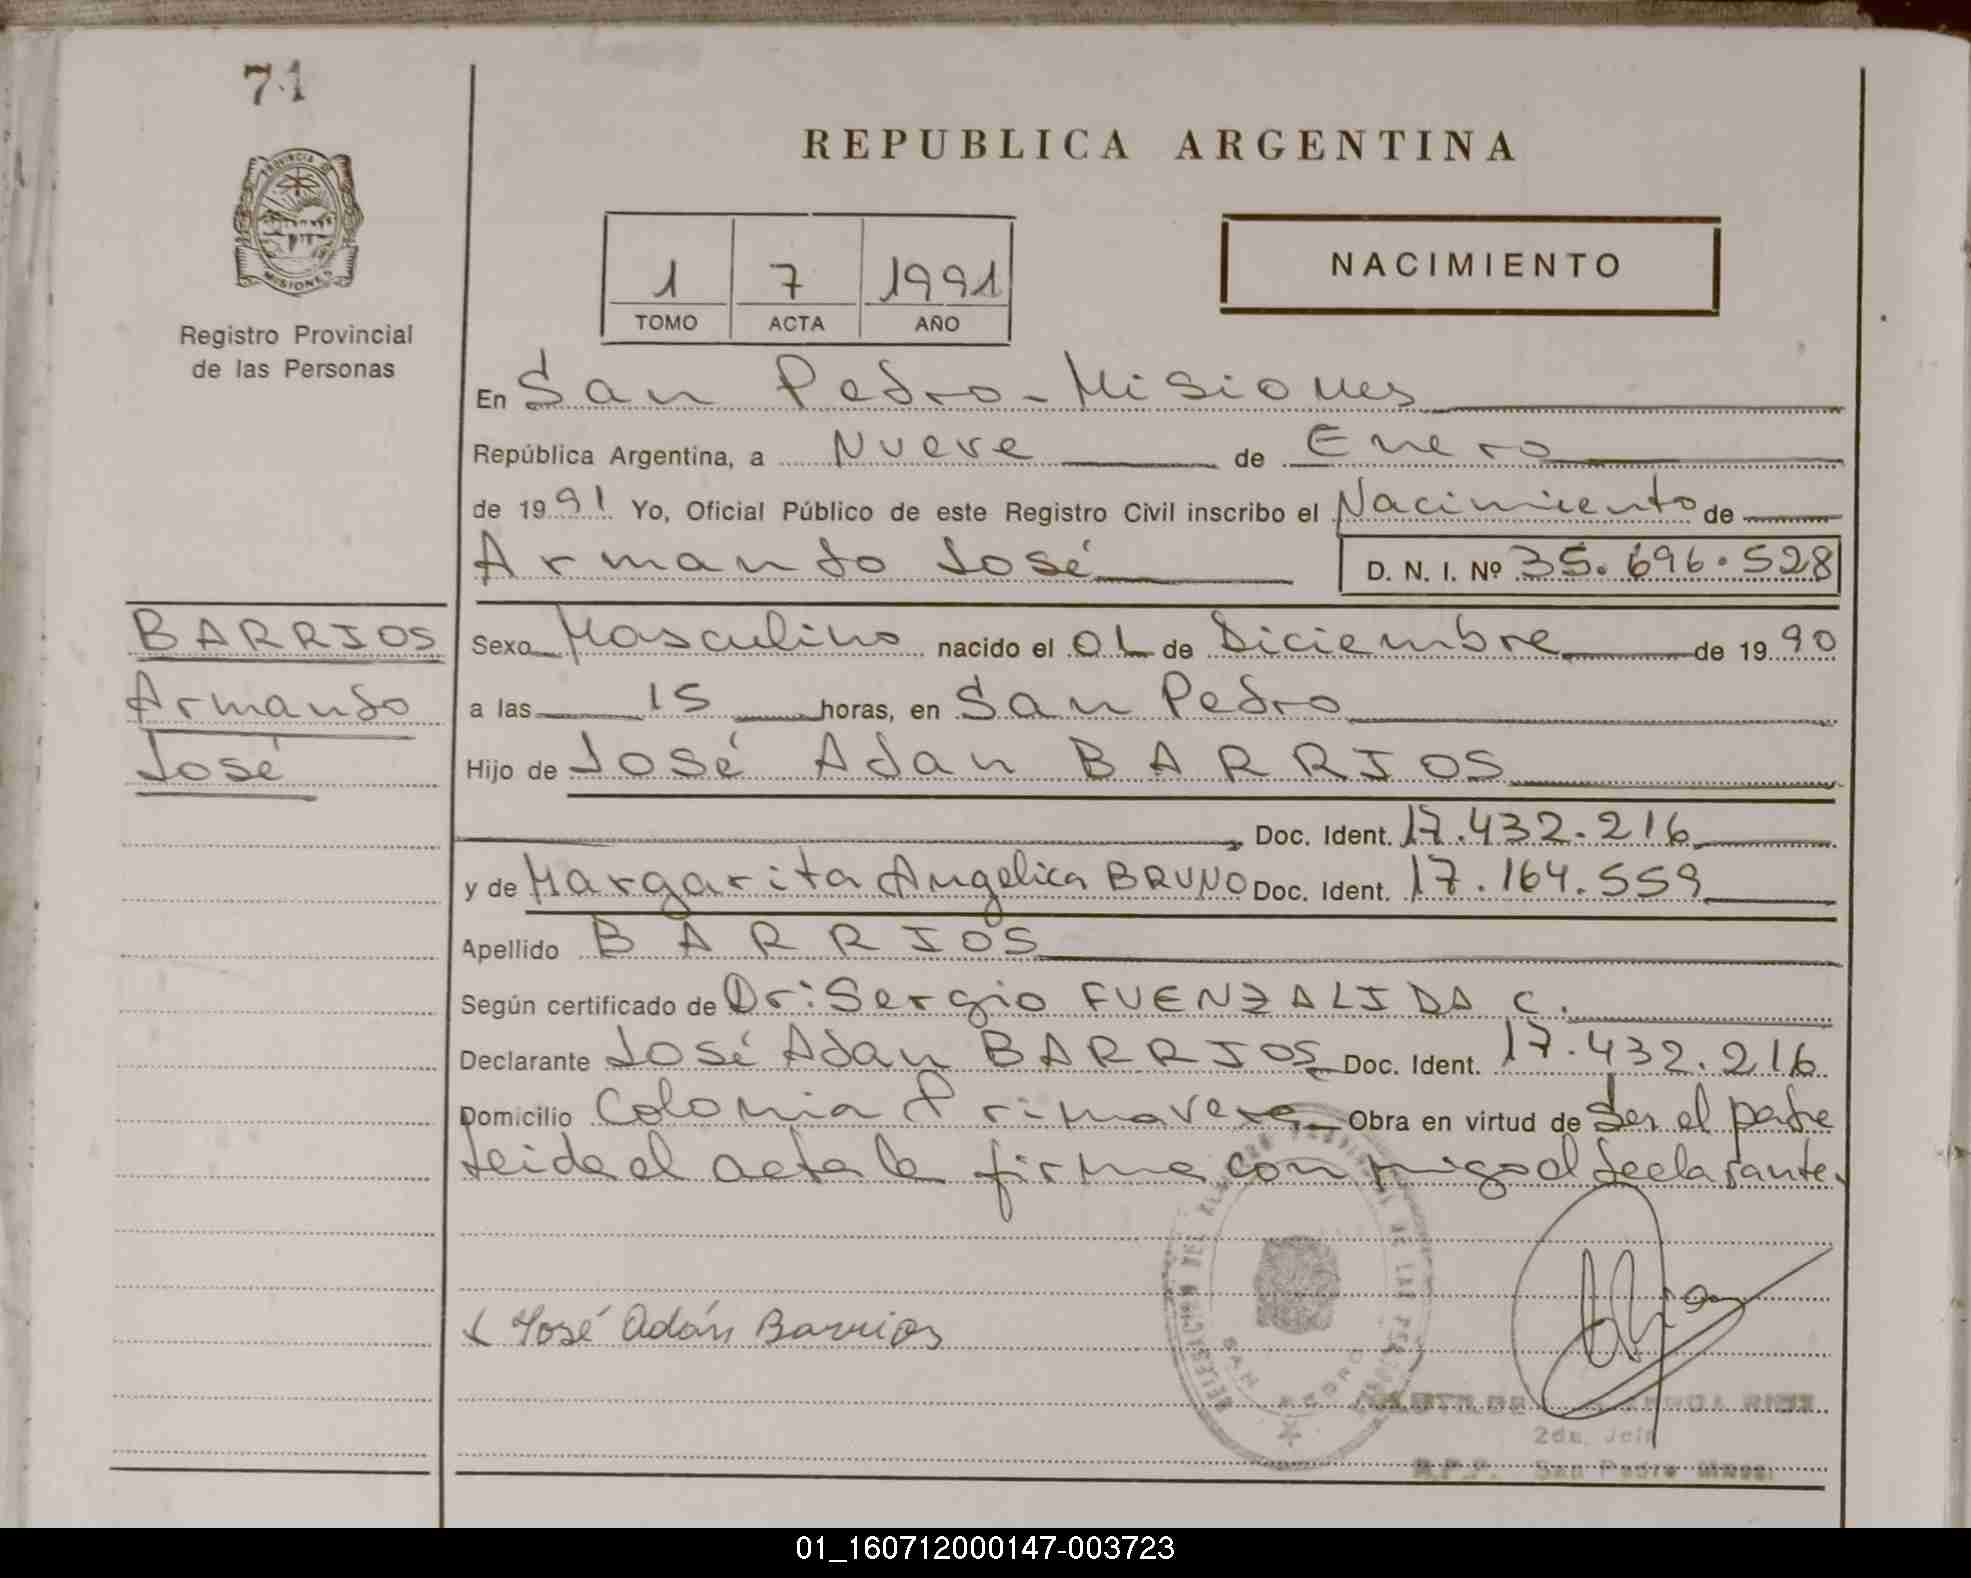 71
REPUBLICA ARGENTINA
PROVINCIA DE
MISIONES
Registro Provincial
de las Personas
1 7 1991
TOMO ACTA AÑO
NACIMIENTO
En San Pedro - Misiones
República Argentina, a Nueve de Enero
de 1991 Yo, Oficial Público de este Registro Civil inscribo el Nacimiento de
Armando José D. N. I. Nº 35.696.528
BARRIOS
Armando
José
Sexo Masculino nacido el 01 de Diciembre de 1990
a las 15 horas, en San Pedro
Hijo de José Adan BARRIOS
Doc. Ident. 17.432.216
y de Margarita Angelica BRUNO Doc. Ident. 17.164.559
Apellido BARRIOS
Según certificado de Dr: Sergio FUENZALIDA C.
Declarante José Adan BARRIOS Doc. Ident. 17.432.216
Domicilio Colonia Primavera Obra en virtud de Ser el padre
Leida el acta la firma conmigo el declarante.
José Adán Barrios
DELEGACION DEL REGISTRO PROVINCIAL DE LAS PERSONAS
SAN PEDRO
2da. Jefe
R.P.P. San Pedro
01_160712000147-003723